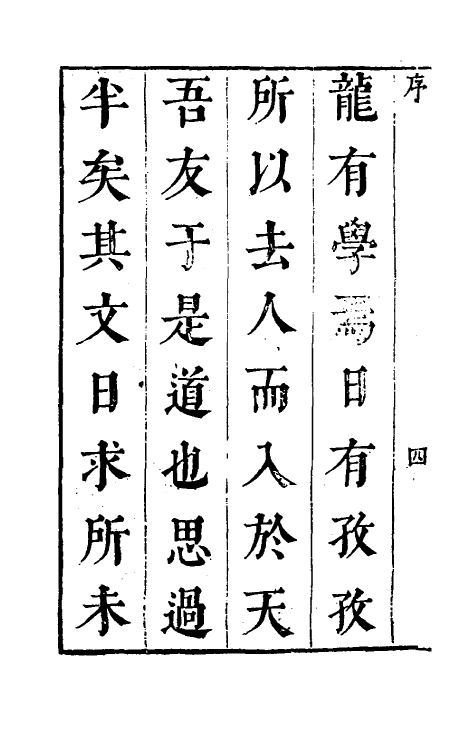 序 四
龍有學焉日有孜孜
所以去人而入於天
吾友于是道也思過
半矣其文日求所未